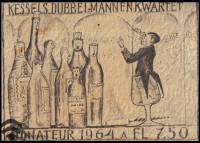 KESSELS DUBBELMANNENKWARTET
DONATEUR 1964 À FL 7.50